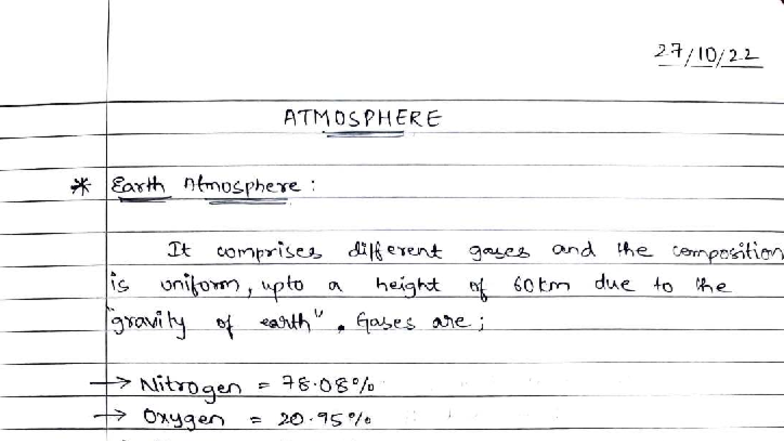 27/10/22
ATMOSPHERE
* Earth Atmosphere :
It comprises different gases and the composition
is uniform, upto a height of 60km due to the
"gravity of earth". Gases are;
→ Nitrogen = 78.08%
→ Oxygen = 20.95%